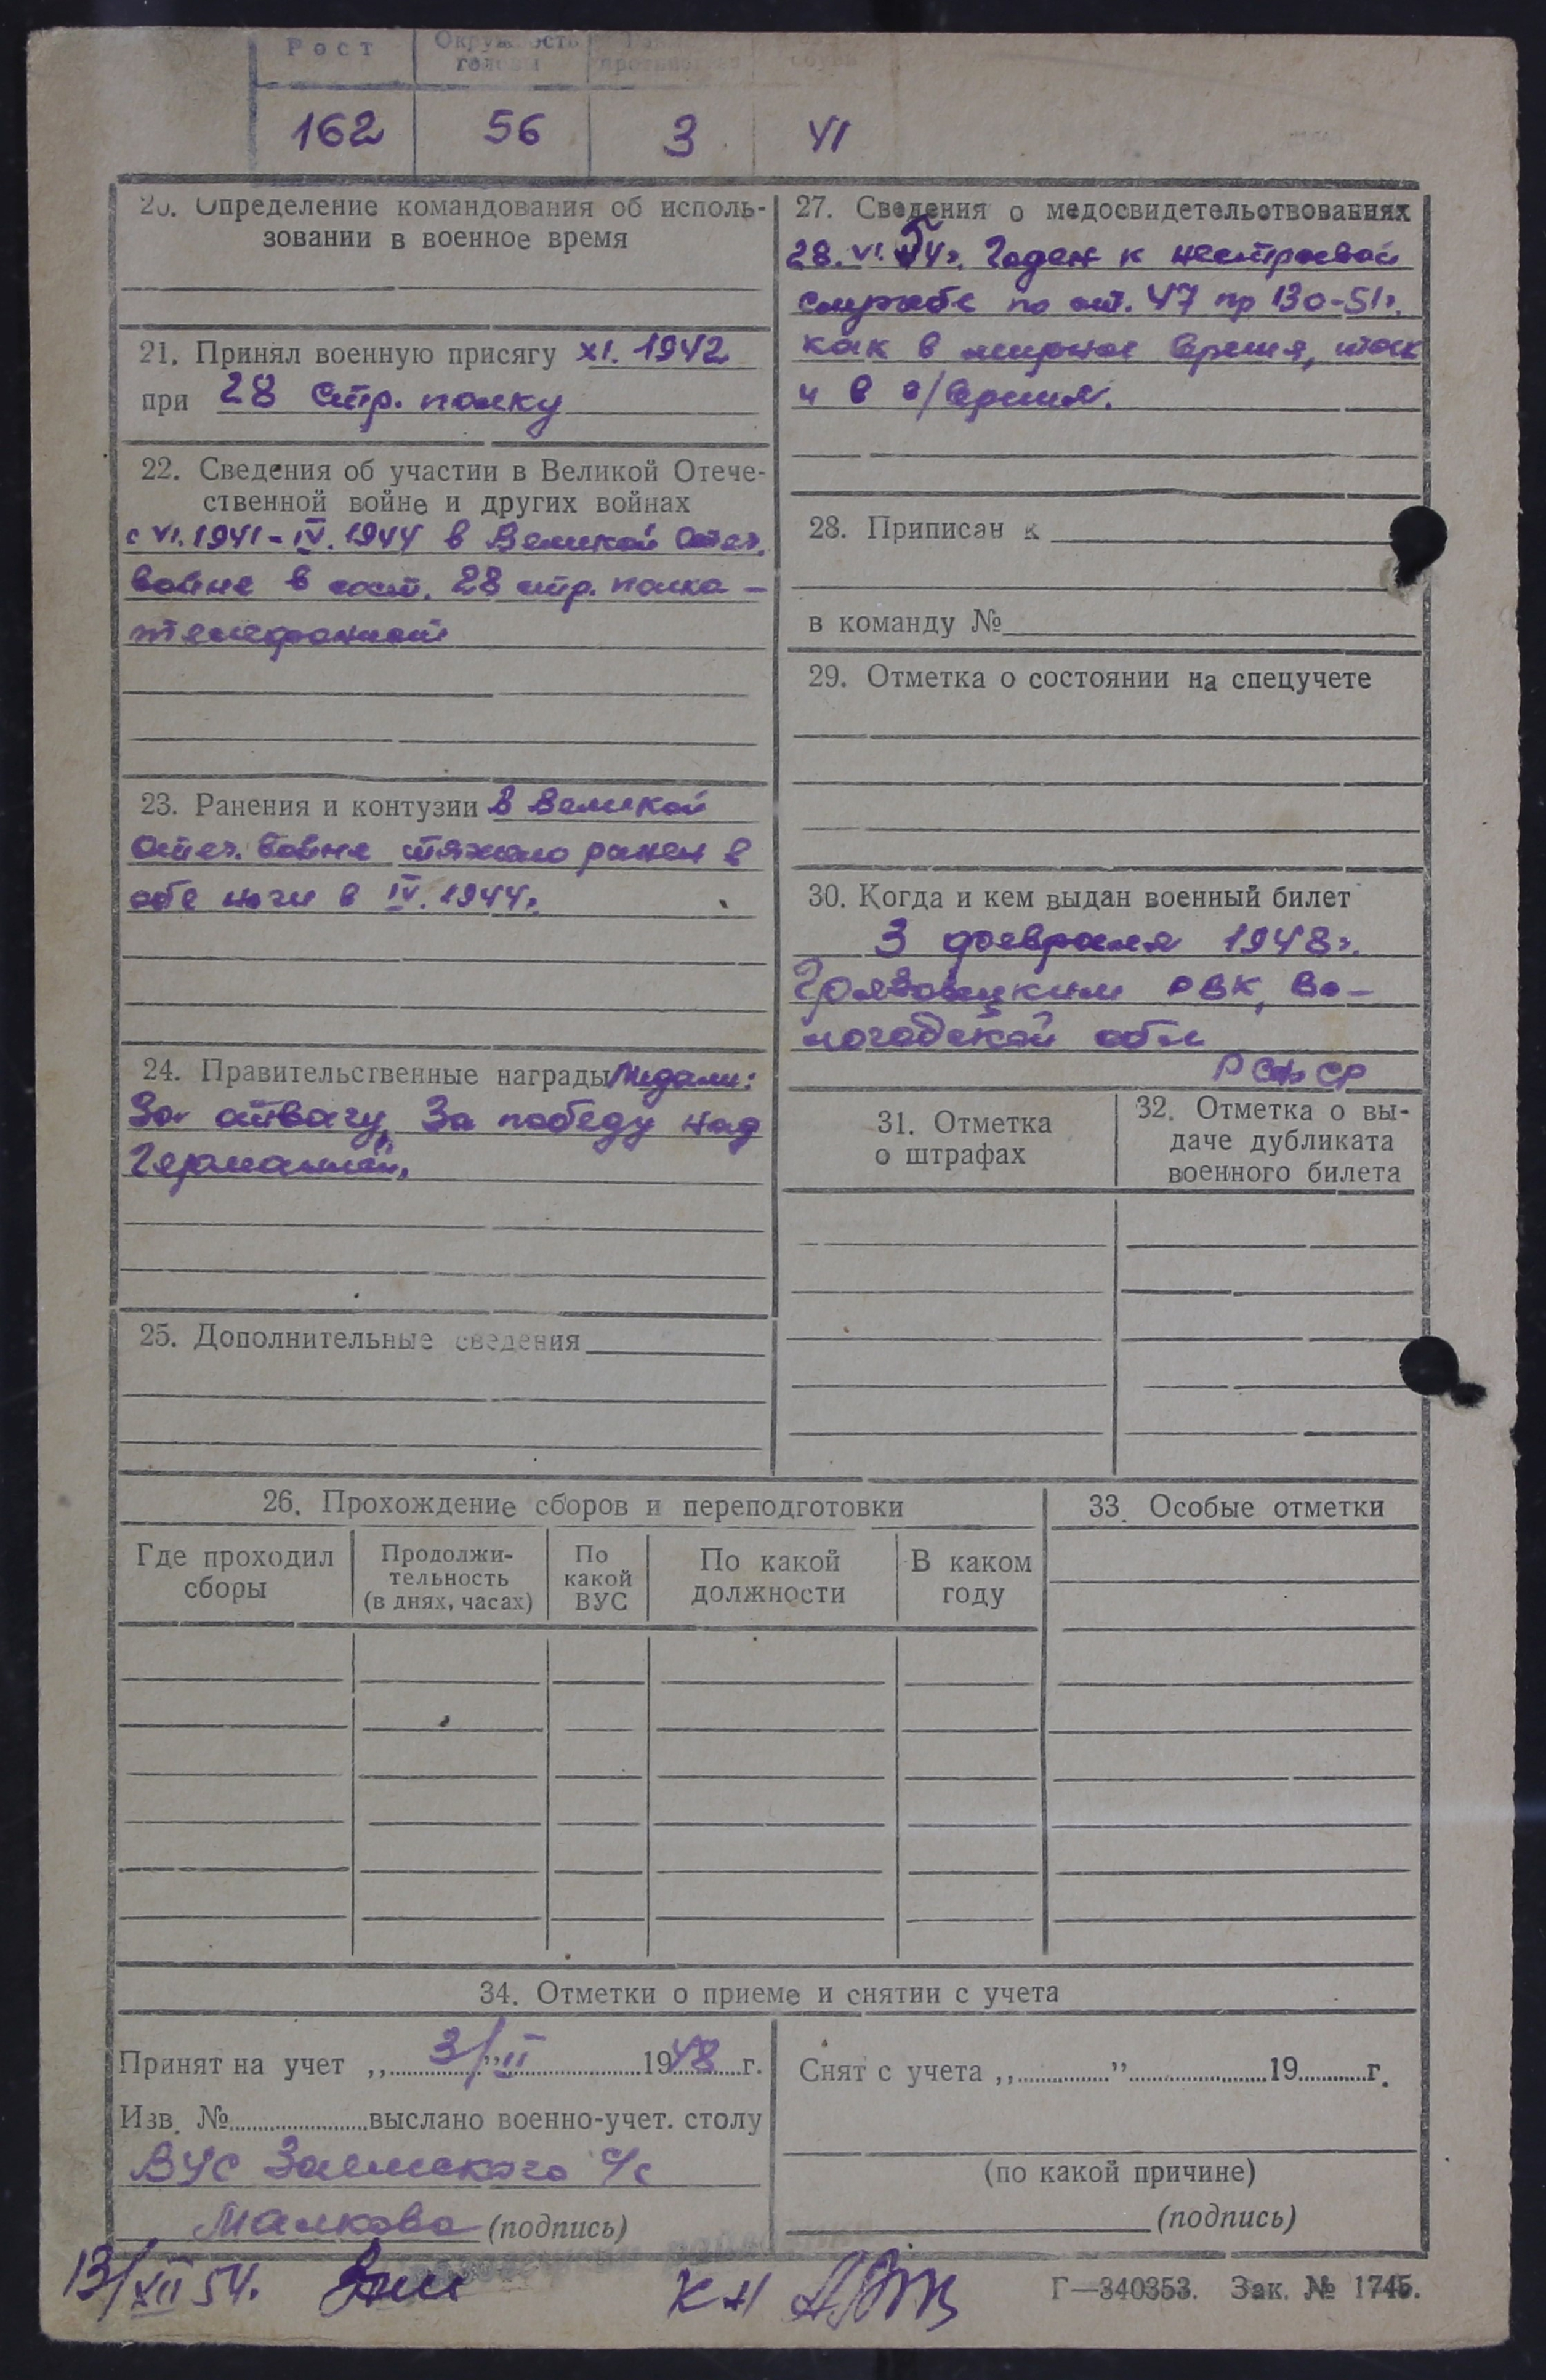 Рост
Окружность головы
162 56 3 41
20. Определение командования об исполь-
зовании в военное время
21. Принял военную присягу XI. 1942
при 28 стр. полку
22. Сведения об участии в Великой Отече-
ственной войне и других войнах
с VI.1941-IV.1944 в Великой Отеч.
войне в сост. 28 стр. полка -
телефонист
23. Ранения и контузии В Великой
Отеч. войне тяжело ранен в
обе ноги в IV.1944г.
24. Правительственные награды Медали:
За отвагу, За победу над
Германией.
25. Дополнительные сведения
27. Сведения о медосвидетельствованиях
28.VI.54г. Годен к нестроевой
службе по ст. 47 пр 130-51г.
как в мирное время, так
и в в/время.
28. Приписан к
в команду №
29. Отметка о состоянии на спецучете
30. Когда и кем выдан военный билет
3 февраля 1948г.
Грязовецким РВК, Во-
логодской обл
РСФСР
31. Отметка
о штрафах
32. Отметка о вы-
даче дубликата
военного билета
26. Прохождение сборов и переподготовки
Где проходил
сборы
Продолжи-
тельность
(в днях, часах)
По
какой
ВУС
По какой
должности
В каком
году
33. Особые отметки
34. Отметки о приеме и снятии с учета
Принят на учет „3/" II 1948 г.
Изв. № выслано военно-учет. столу
ВУС Заемского с/с
Малкова (подпись)
Снят с учета „ " 19 г.
(по какой причине)
(подпись)
13/XII 54.
Г—340353. Зак. № 1745.